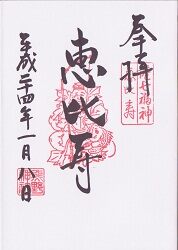 奉拝
七福神
恵比寿
平成二十四年一月八日